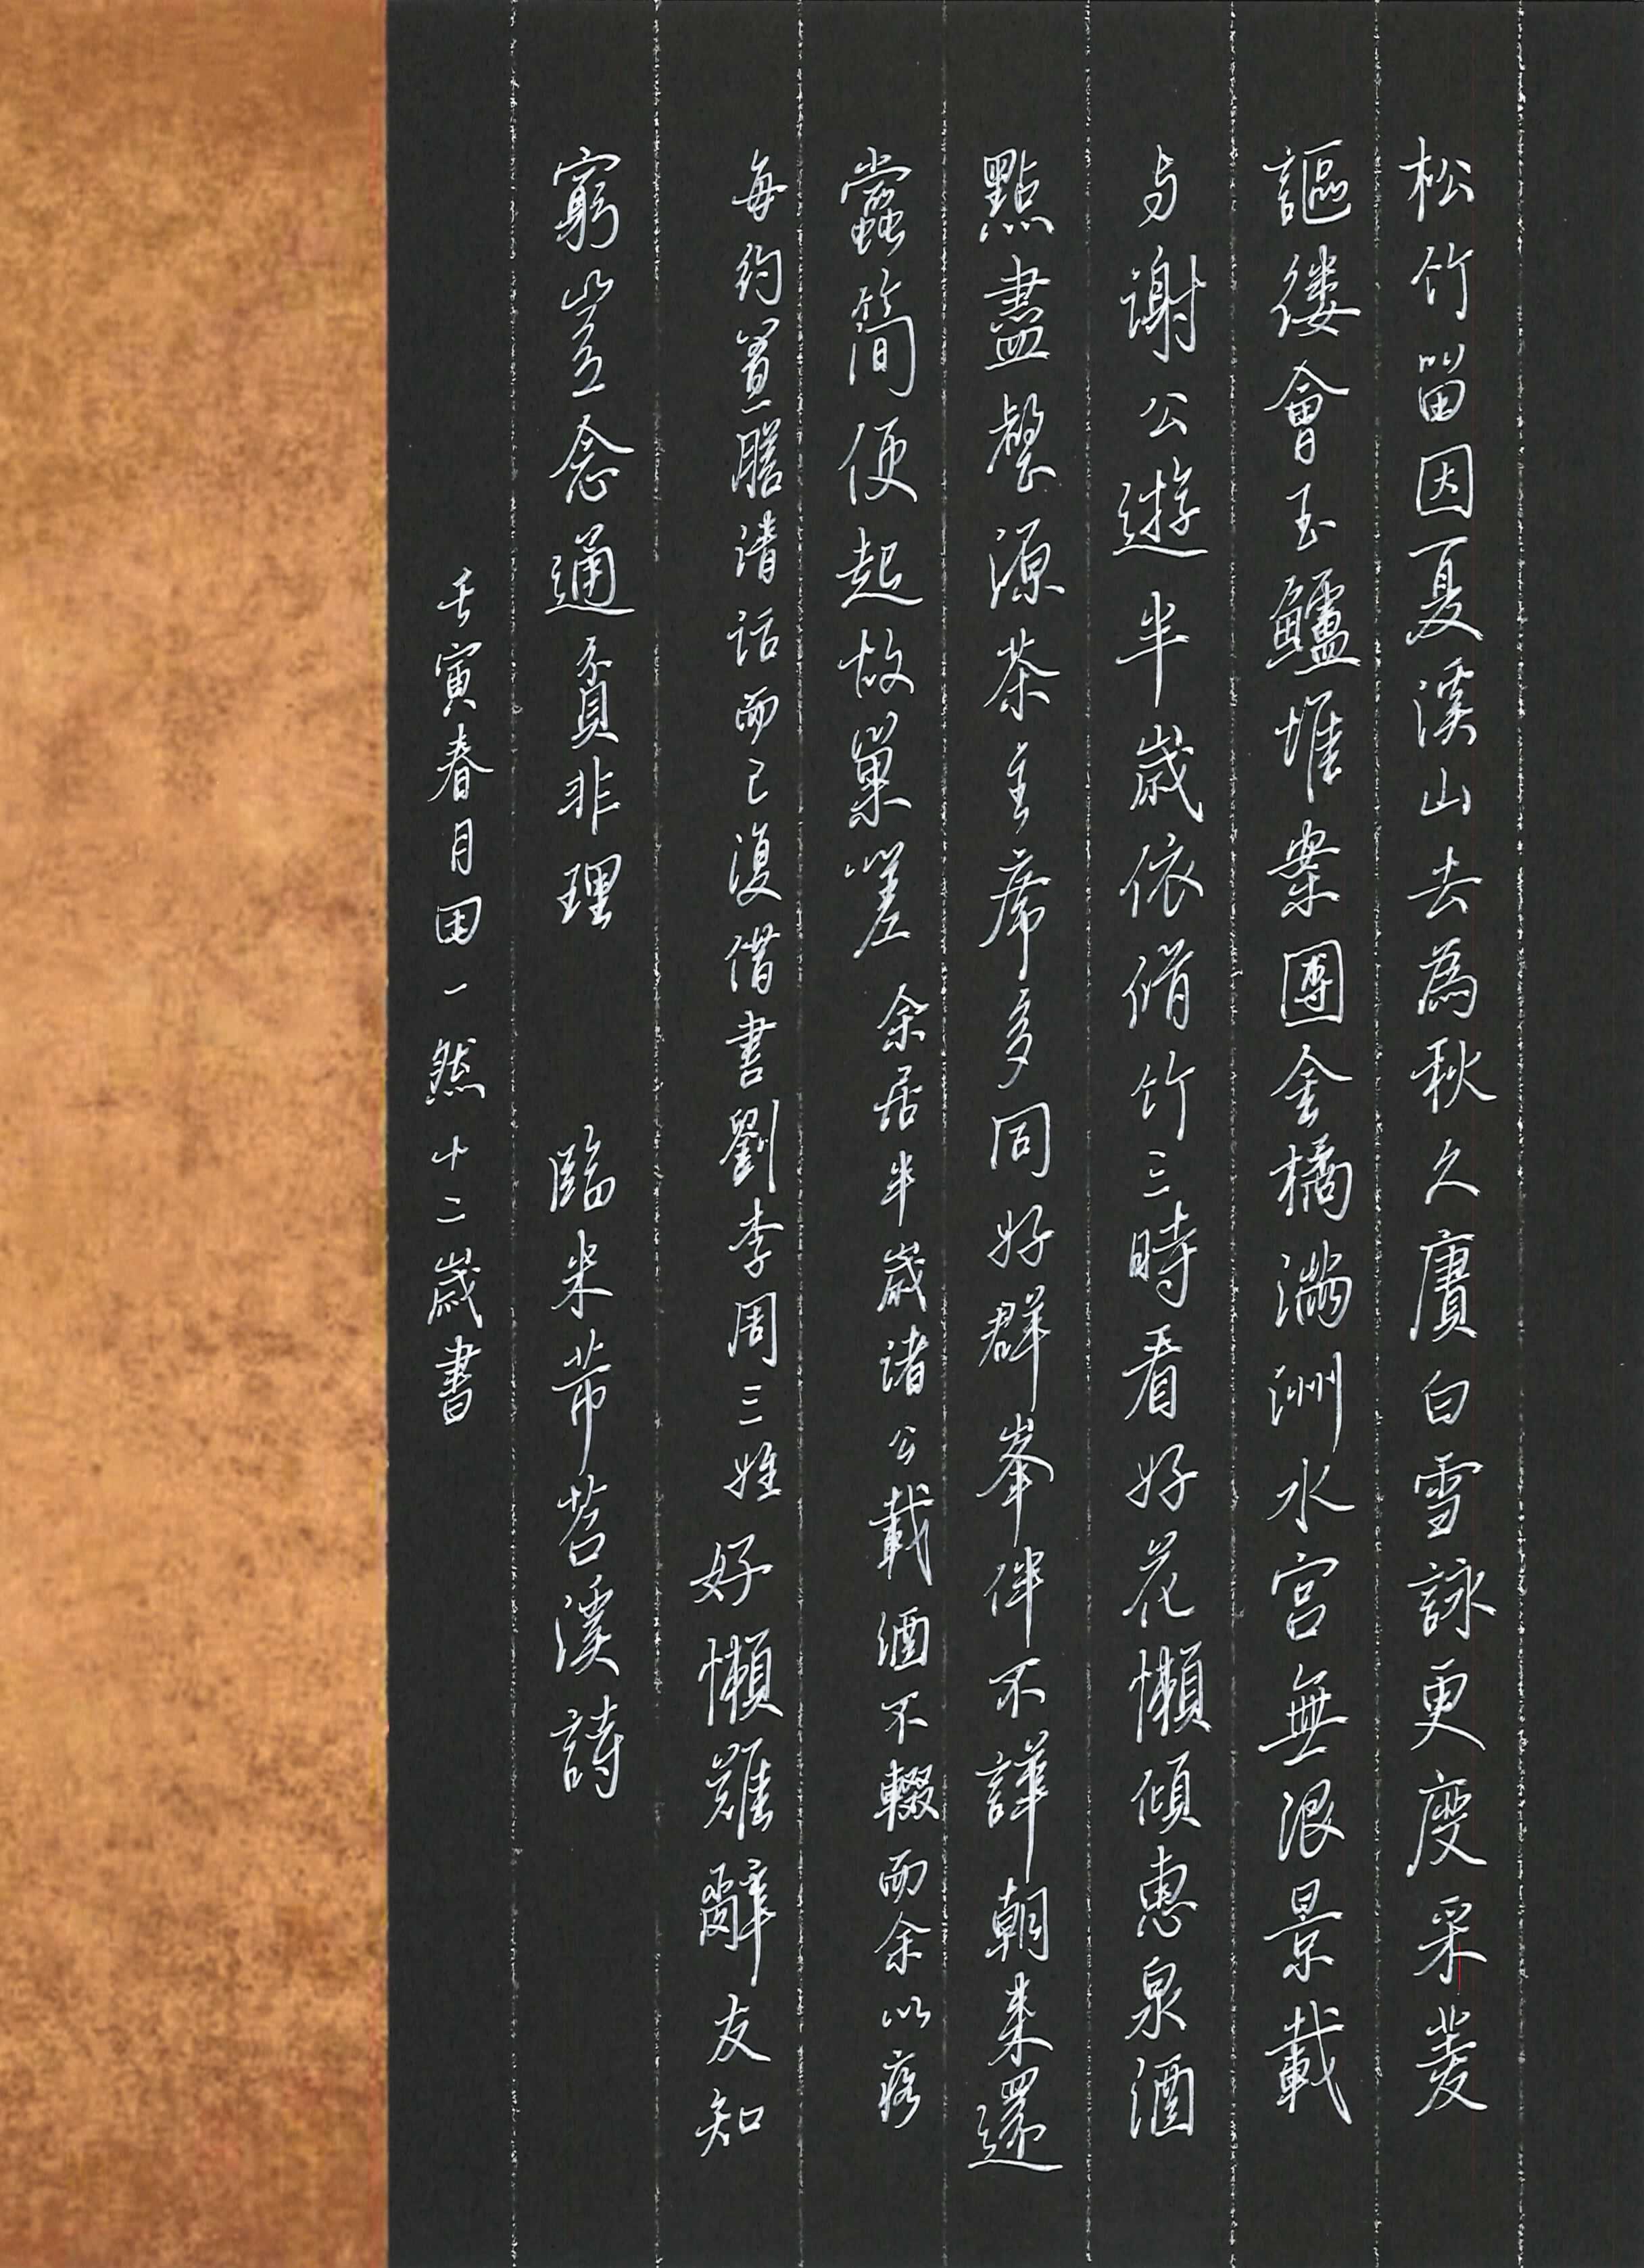 松竹留因夏溪山去為秋久賡白雪詠更度采菱
謳縷會玉鱸堆案團金橘滿洲水宮無限景載
与謝公遊半歲依脩竹三時看好花懶傾惠泉酒
點盡壑源茶主席多同好群峯伴不譁朝来還
蠹簡便起故巢嗟余居半歲諸公載酒不輟而余以疾
每約置膳清話而已復借書劉李周三姓好懶難辭友知
窮豈念通貧非理臨米芾苕溪詩
壬寅春月田一然十二歲書